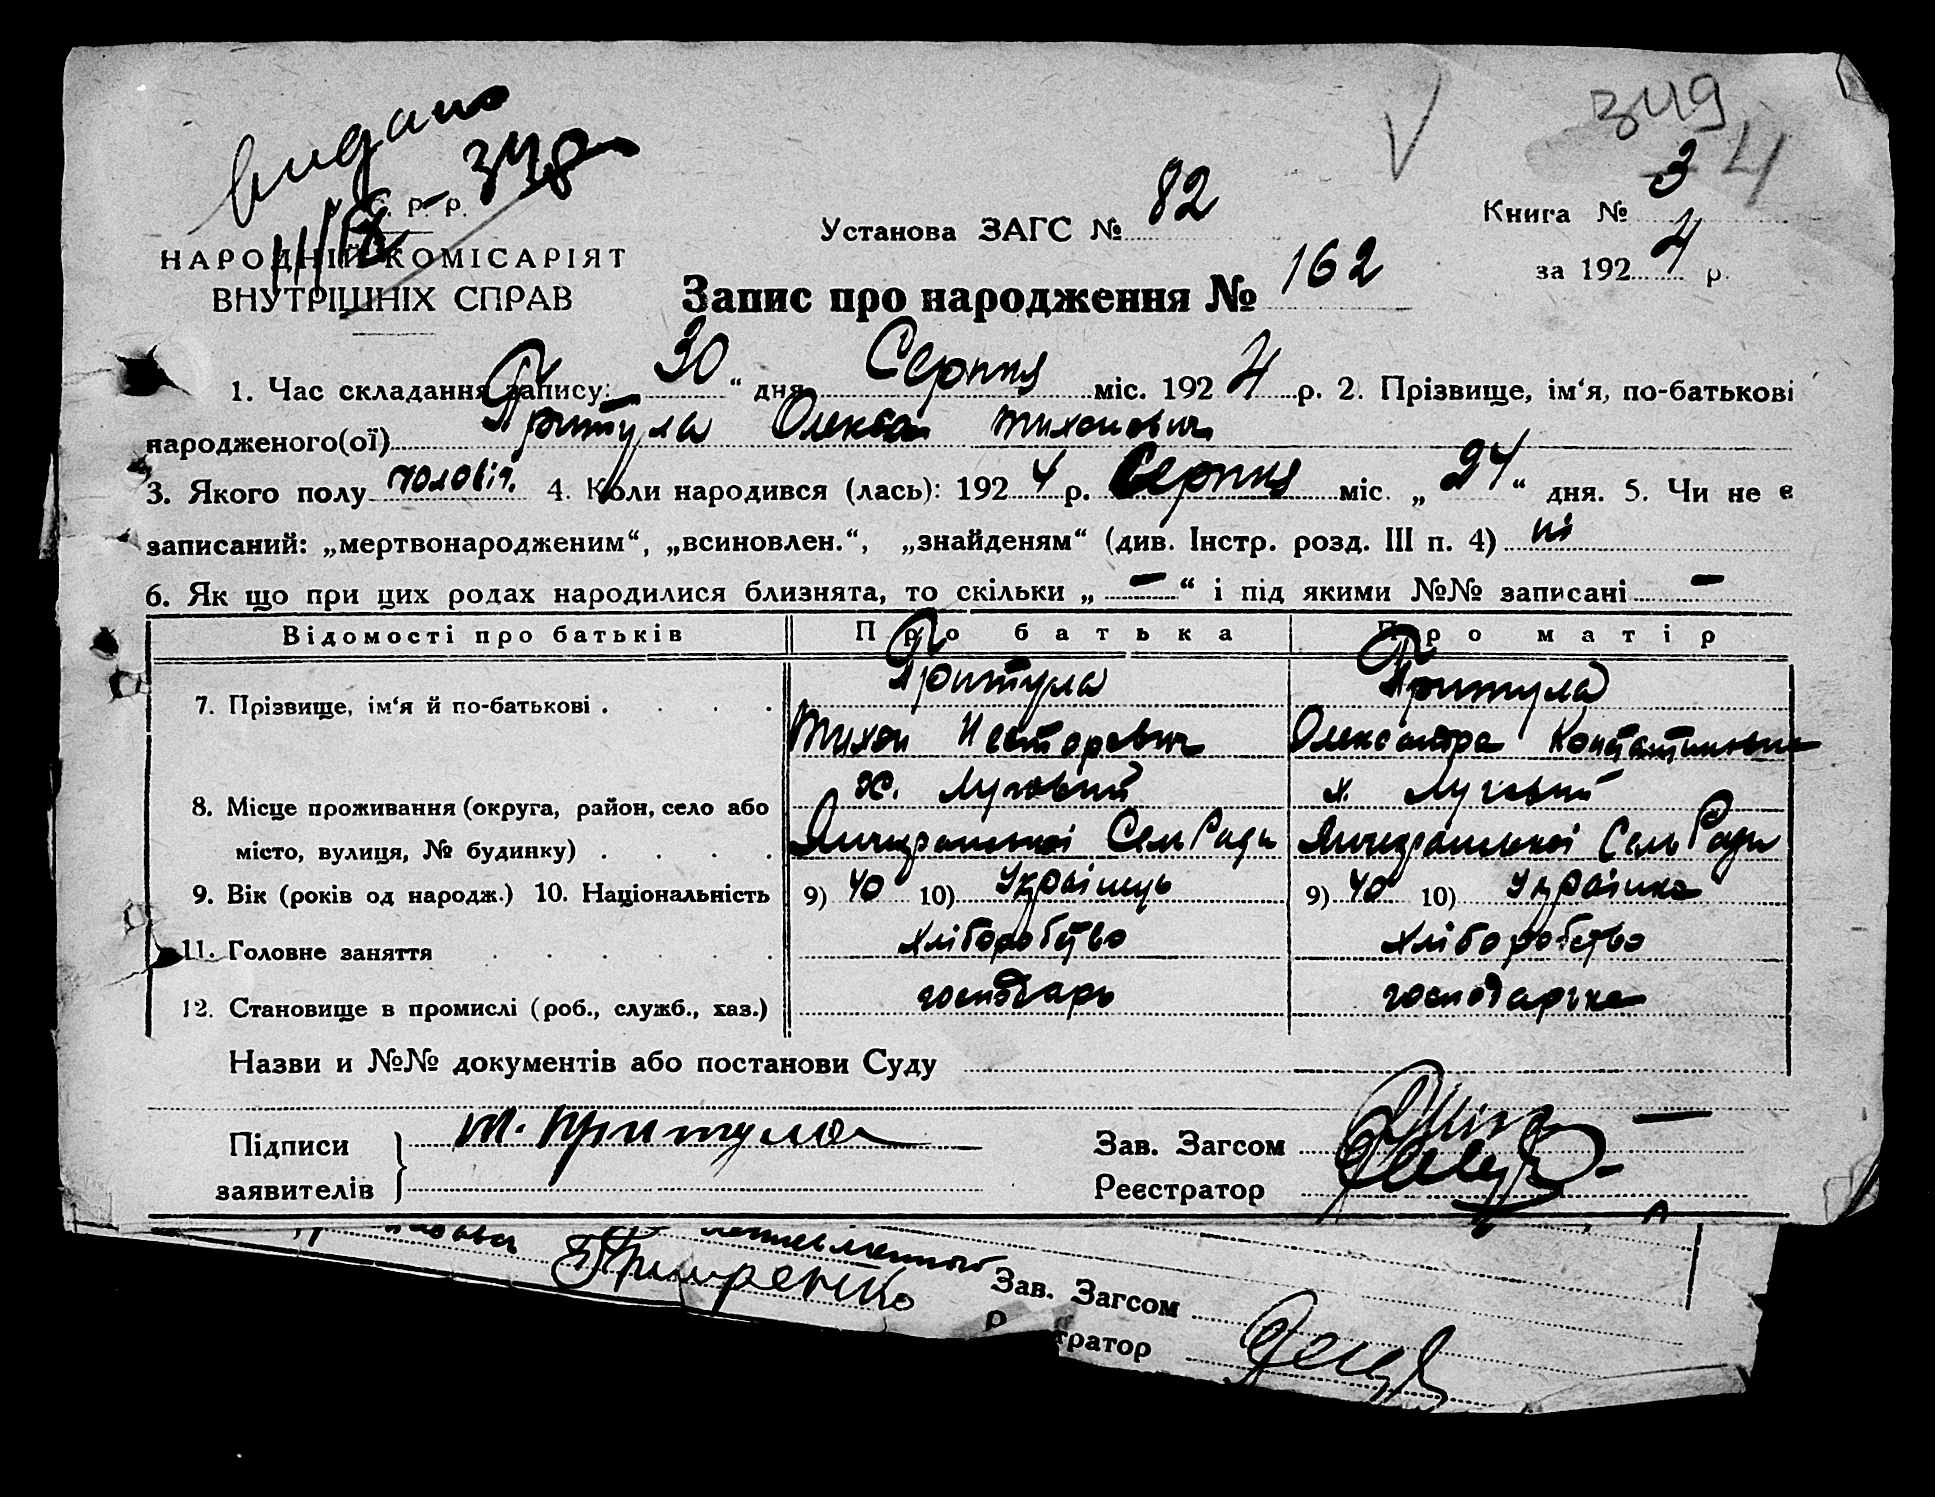 видано
349
348
4
С. Р. Р.
Установа ЗАГС № 82
Книга № 3
НАРОДНІЙ КОМІСАРІЯТ
за 1924 р.
ВНУТРІШНІХ СПРАВ
Запис про народження № 162
1. Час складання запису: 30 “ дня Серпня міс. 1924 р. 2. Прізвище, ім‘я, по-батькові
народженого(ої) Притула Олекса Тихонович
3. Якого полу чоловіч. 4. Коли народився (лась): 1924 р. Серпня міс. „ 24 “ дня. 5. Чи не є
записаний: „мертвонародженим“, „всиновлен.“, „знайденям“ (див. Інстр. розд. III п. 4) ні
6. Як що при цих родах народилися близнята, то скільки „ — “ і під якими №№ записані —
Відомості про батьків Про батька Про матір
7. Прізвище, ім‘я й по-батькові Притула Притула
Тихон Несторович Олександра Константиновна
х. Луговий х. Луговий
8. Місце проживання (округа, район, село або
місто, вулиця, № будинку) СельРади СельРади
9. Вік (років од народж.) 10. Національність 9) 40 10) Українець 9) 40 10) Українка
11. Головне заняття хліборобство хліборобство
12. Становище в промислі (роб., служб., хаз.) господарь господарька
Назви и №№ документів або постанови Суду
Підписи Т. Притула Зав. Загсом
заявителів Реєстратор
Зав. Загсом
тратор